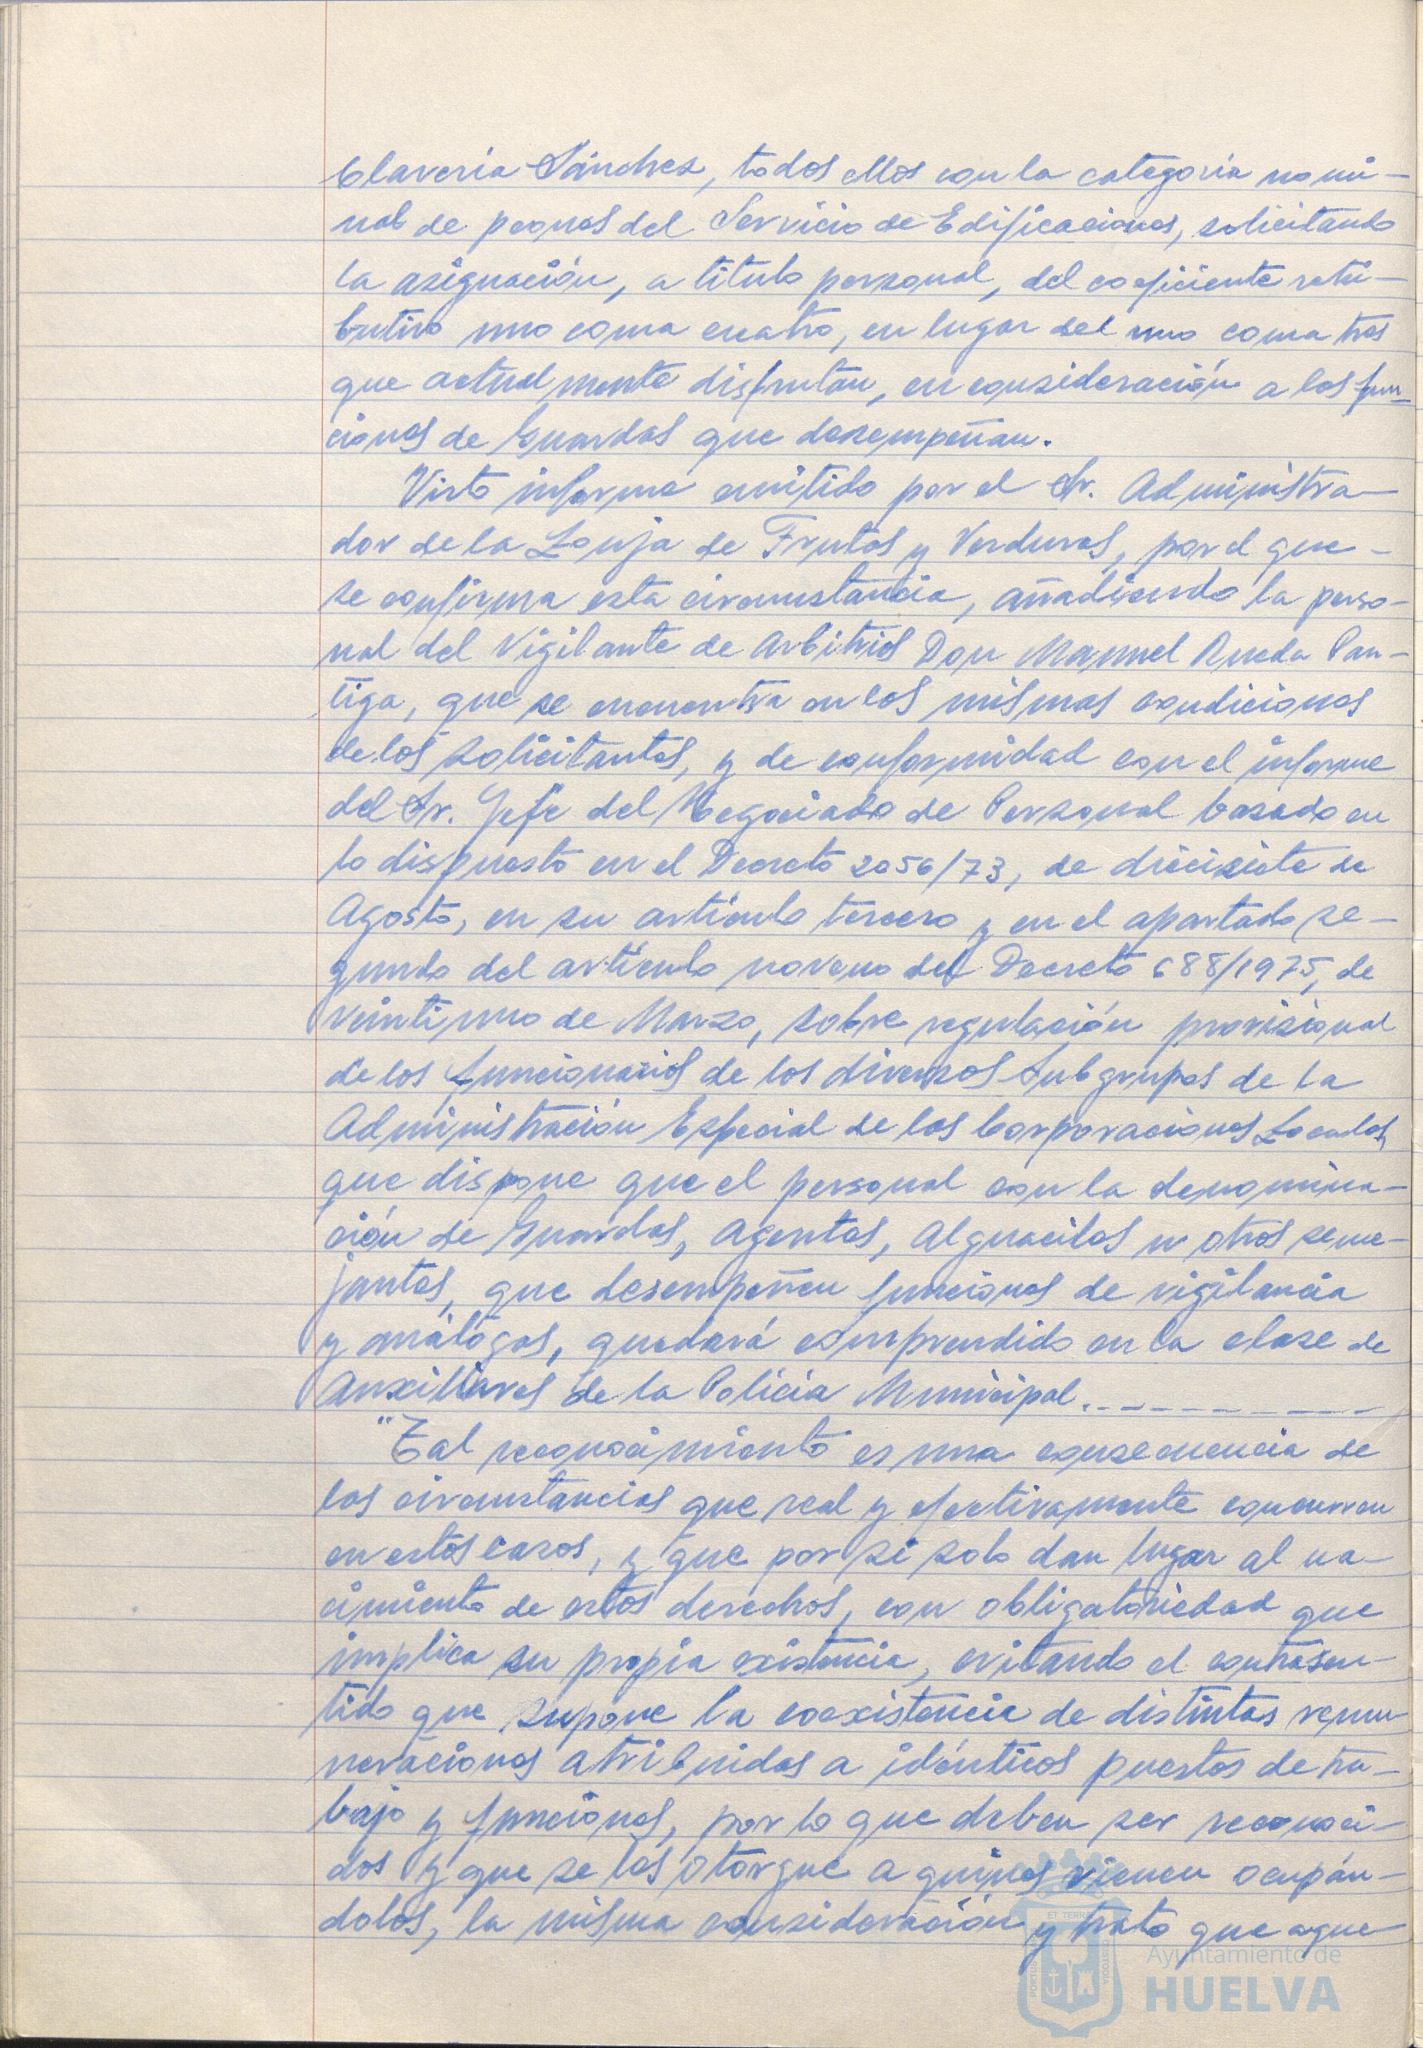 Claveria Sánchez, todos ellos con la categoría nomi-
nal de peones del Servicio de Edificaciones, solicitando
la asignación, a título personal, del coeficiente retri-
butivo uno coma cuatro, en lugar del uno coma tres
que actualmente disfrutan, en consideración a las fun-
ciones de Guardas que desempeñan.
Visto informe emitido por el Sr. Administra-
dor de la Lonja de Frutas y Verduras, por el que
se confirma esta circunstancia, añadiendo la perso-
nal del Vigilante de Arbitrios Don Manuel Rueda Pan-
tiga, que se encuentra en las mismas condiciones
de los solicitantes, y de conformidad con el informe
del Sr. Jefe del Negociado de Personal basado en
lo dispuesto en el Decreto 2056/73, de diecisiete de
Agosto, en su artículo tercero y en el apartado se-
gundo del artículo noveno del Decreto 688/1975, de
veintiuno de Marzo, sobre regulación provisional
de los funcionarios de los diversos Subgrupos de la
Administración Especial de las Corporaciones Locales,
que dispone que el personal con la denomina-
ción de Guardas, Agentes, Alguaciles u otros seme-
jantes, que desempeñen funciones de vigilancia
y análogas, quedará comprendido en la clase de
Auxiliares de la Policía Municipal.
"Tal reconocimiento es una consecuencia de
las circunstancias que real y efectivamente concurren
en estos casos, y que por sí solo dan lugar al na-
cimiento de estos derechos, con obligatoriedad que
implica su propia existencia, evitando el contrasen-
tido que supone la coexistencia de distintas remu-
neraciones atribuidas a idénticos puestos de tra-
bajo y funciones, por lo que deben ser reconoci-
dos y que se les otorgue a quines vienen ocupán-
dolos, la misma consideración y trato que aque
Ayuntamiento de
HUELVA